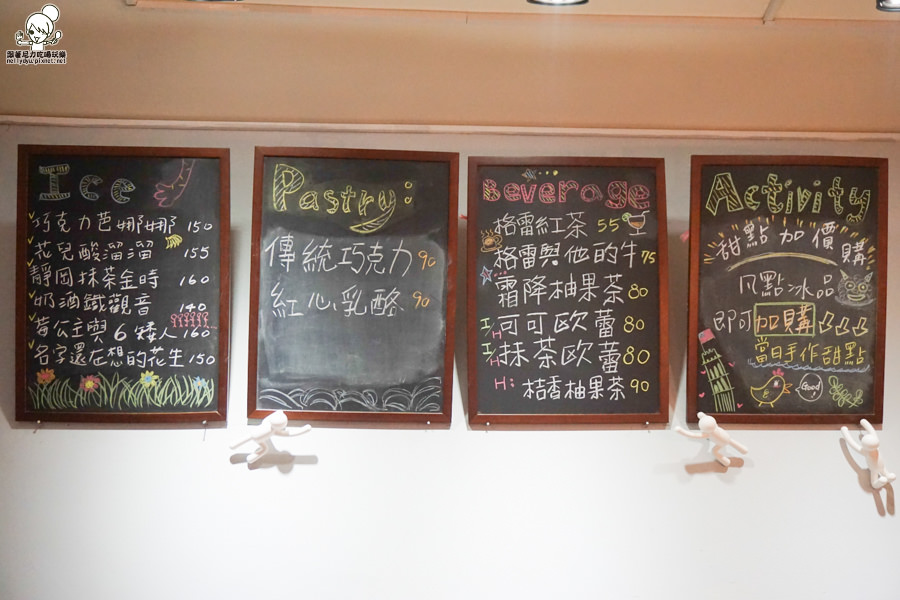 跟著尼力吃喝玩樂
nellydyu.pixnet.net
Ice
巧克力芭娜娜 150
花兒酸溜溜 155
靜岡抹茶金時 160
奶酒鐵觀音 140
莓公主與6矮人 160
名字還在想的花生 150
Pastry:
傳統巧克力 90
紅心乳酪 90
Beverage
格雷紅茶 55
格雷與他的牛 75
霜降柚果茶 80
I/H 可可歐蕾 80
I/H 抹茶歐蕾 80
H: 桔香柚果茶 90
Activity
甜點加價購
凡點冰品
即可加購
當日手作甜點
Good